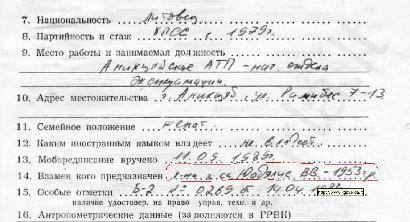 7. Национальность литовец
8. Партийность и стаж КПСС с 1979г.
9. Место работы и занимаемая должность
Аникщяйское АТП - нач. отдела
эксплуатации
10. Адрес местожительства г. Аникщяй, ул. Рамибес 7-13
11. Семейное положение женат
12. Каким иностранным языком владеет не владеет
13. Мобпредписание вручено 11.05. 1989г.
14. Взамен кого предназначен ВВ-1953г.
15. Особые отметки Б-2 1: 0269 14.04.
наличие удостовер. на право управ. техн. и др.
16. Антропометрические данные (заполняются в ГРВК)